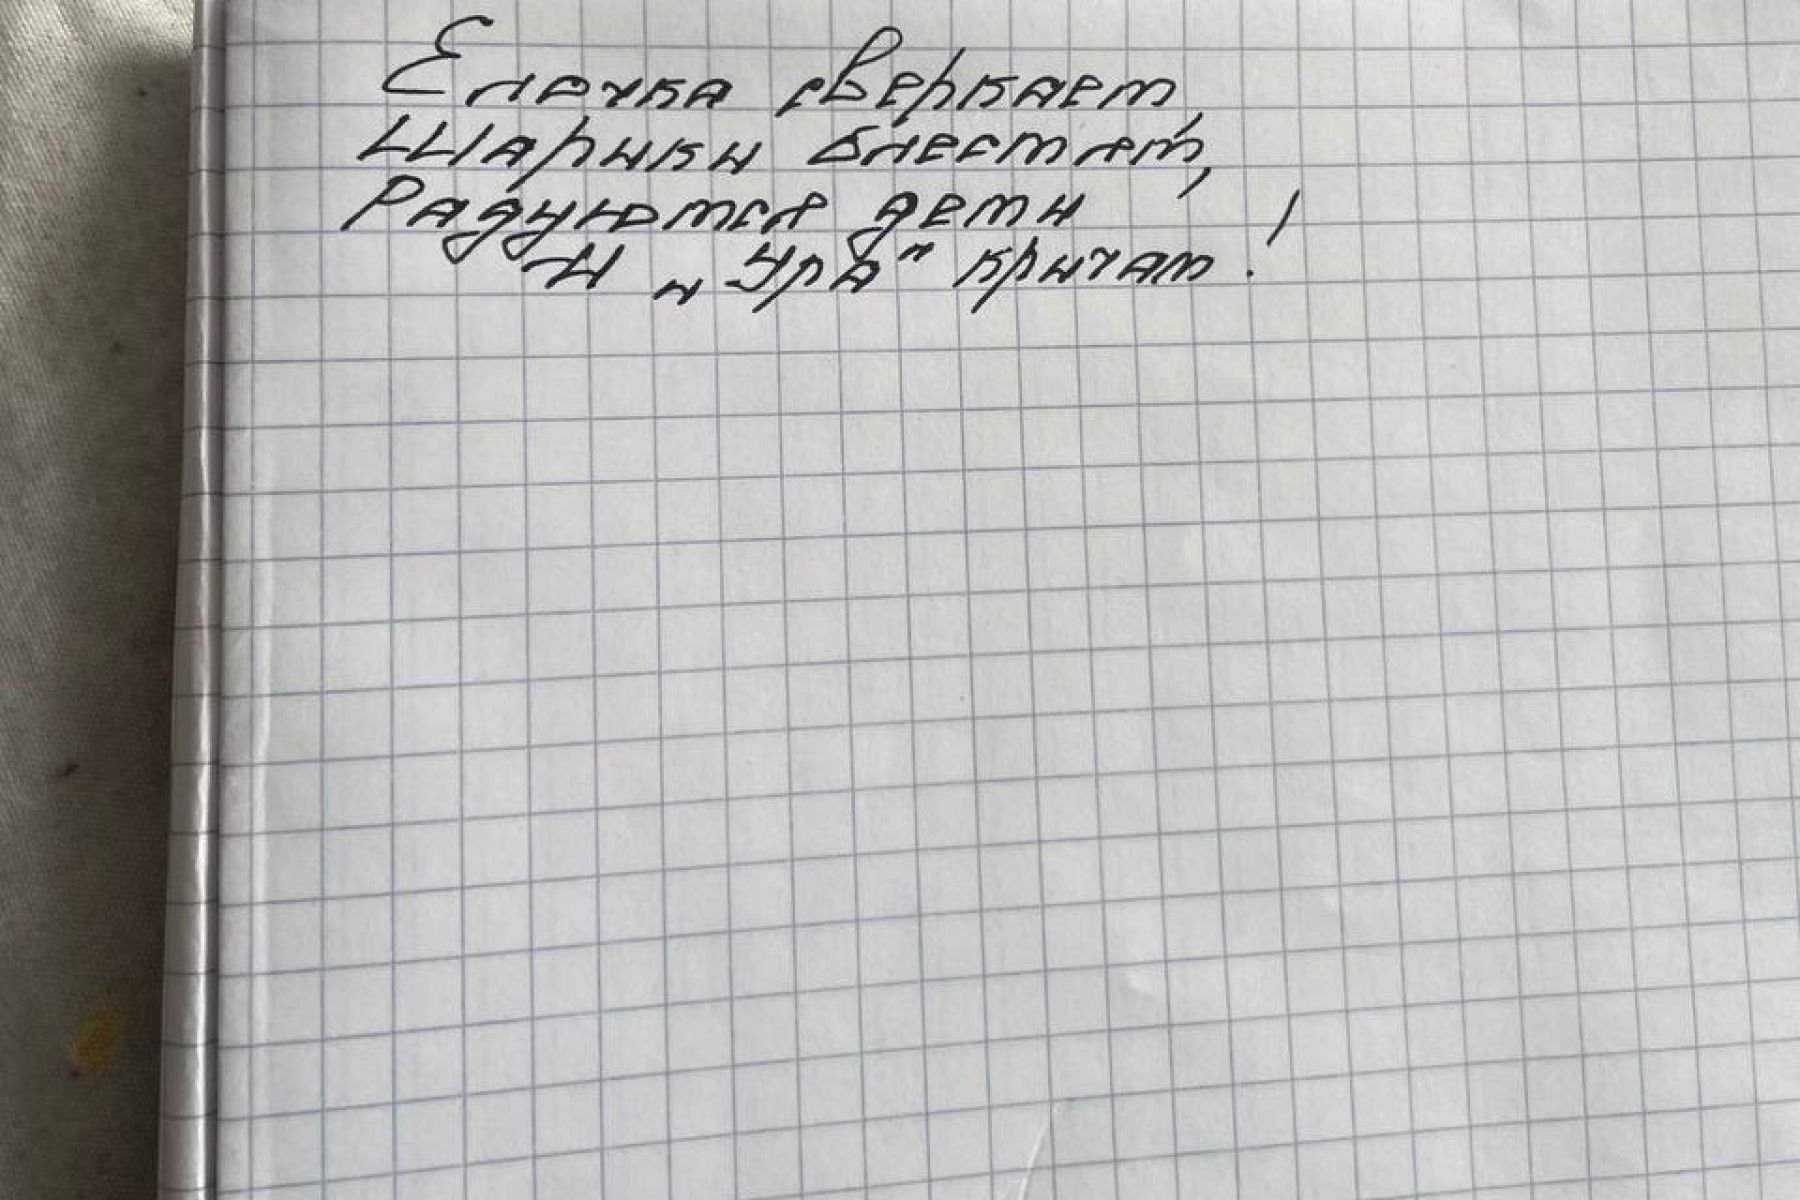 Елочка сверкает,
Шарики блестят,
Радуются дети
И „Ура" кричат!